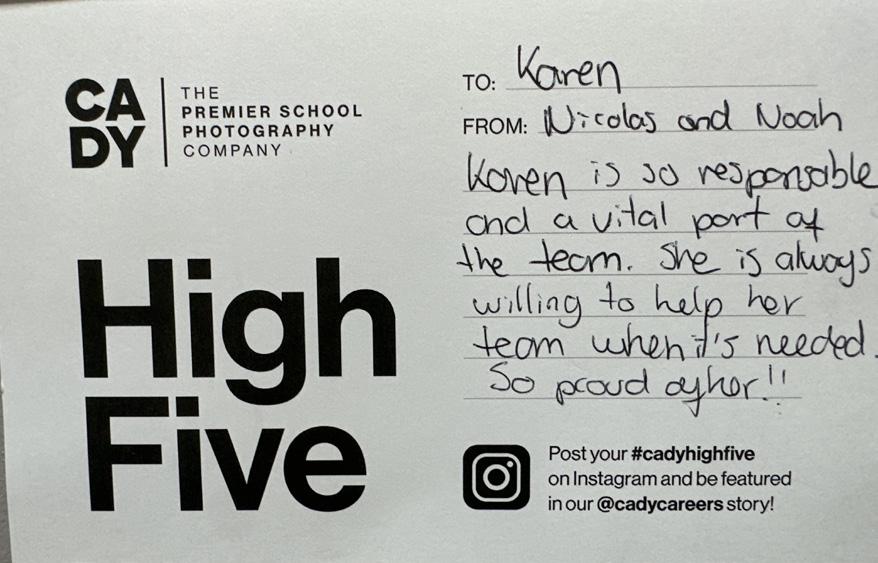 CADY
THE
PREMIER SCHOOL
PHOTOGRAPHY
COMPANY
High
Five
TO: Karen
FROM: Nicolas and Noah
Karen is so responsable
and a vital part of
the team. She is always
willing to help her
team when it's needed.
So proud of her!!
Post your #cadyhighfive
on Instagram and be featured
in our @cadycareers story!